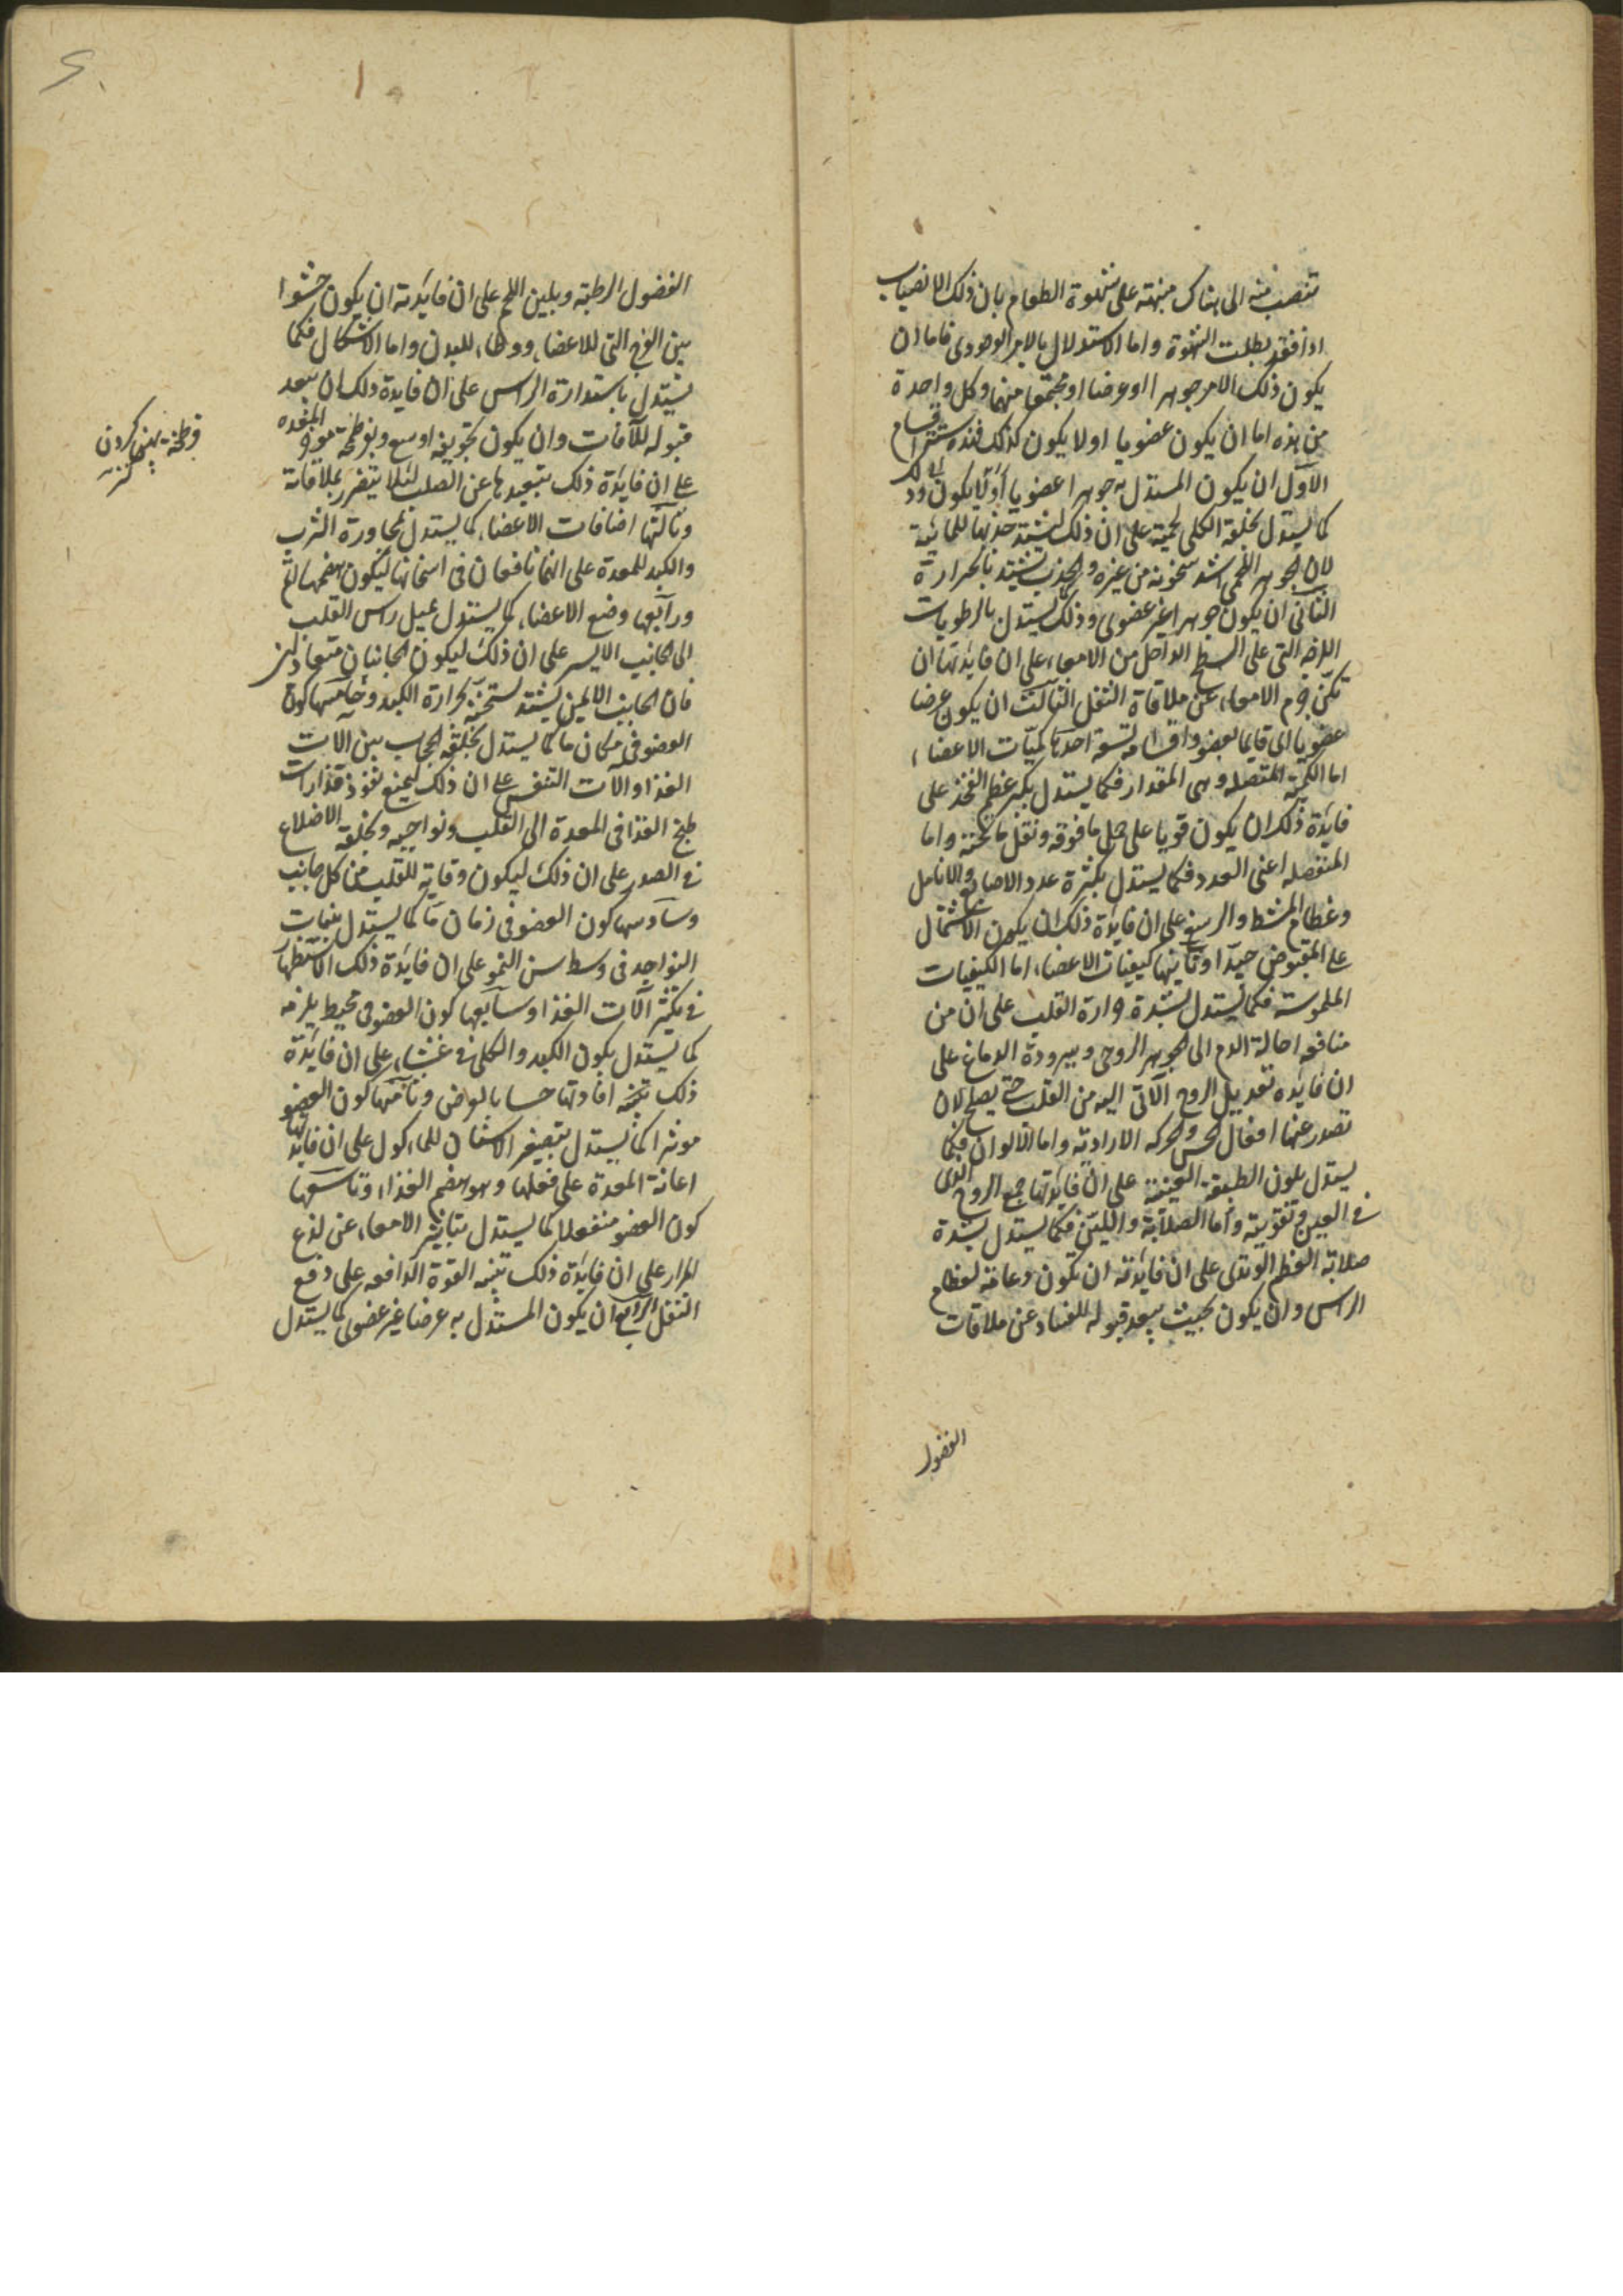 تنصب منه الى هناك منبهة على شهوة الطعام بان ذلك الانصباب
اذا فقد بطلت الشهوة واما الاستدلال بالامر الوجودى فاما ان
يكون ذلك الامر جوهرا او عرضا او مجتمعا منهما وكل واحدة
من هذه اما ان يكون عضويا اولا يكون كذلك فهذه ستة اقسام
الاول ان يكون المستدل به جوهرا عضويا
كما يستدل بخلقة الكلى لحمية على ان ذلك ليشتد جذبها للمائية
لان الجوهر اللحمى اشد سخونة من غيره والجذب يشتد بالحرارة
الثانى ان يكون جوهرا غير عضوى وذلك كما يستدل بالرطوبات
اللزجه التى على السطح الداخل من الامعاء على ان فايدتها ان
تكن جرم الامعاء عن ملاقاة الثفل الثالث ان يكون عرضا
عضويا اى قايما بعضو واقسامه تسعة احدها كميات الاعضاء
اما الكمية المتصله وهى المقدار فكما يستدل بكبر عظم الفخذ على
فايدة ذلك ان يكون قويا على حمل ما فوقه ونقل ما تحته واما
المنفصله اعنى العدد فكما يستدل بكثرة عدد الاصابع والانامل
وعظام المشط والرسغ على ان فايدة ذلك ان يكون الاشتمال
على المقبوض جيدا وثانيها كيفيات الاعضاء اما الكيفيات
الملموسة فكما يستدل بشدة حرارة القلب على ان من
منافعه احالة الدم الى الجوهر الروحى وببرودة الدماغ على
ان فايده تعديل الروح الآتى اليه من القلب حتى يصلح لان
تصدر عنها افعال الحس والحركه الارادية واما الالوان فكما
يستدل بلون الطبقة العنبية على ان فايدتها جمع الروح الذى
فى العين وتقويته واما الصلابة واللين فكما يستدل بشدة
صلابة العظم الوتدى على ان فايدته ان تكون دعامة لعظام
الراس وان يكون بحيث يبعد قبوله للفساد عن ملاقات
الفضول
الفضول الرطبة وبلين اللحم على ان فايدته ان يكون حشوا
بين الفرج التى للاعضاء ووطاء للبدن واما الاشكال فكما
يستدل باستدارة الراس على ان فايدة ذلك ان يبعد
قبوله للآفات وان يكون تجويفه اوسع وبفرطحة مؤخر المعده
على ان فايدة ذلك بتبعيدها عن الصلب لئلا يتضرر بملاقاته
وثالثها اضافات الاعضاء كما يستدل بمجاورة الثرب
والكبد للمعدة على انهما نافعان فى اسخانها ليكون هضمها اتم
ورابعها وضع الاعضاء كما يستدل بميل راس القلب
الى الجانب الايسر على ان ذلك ليكون الجانبان متعادلين
فان الجانب الايمن يشتد تسخنه بحرارة الكبد وخامسها كون
العضو فى مكان ما كما يستدل بخلقة الحجاب بين آلات
الغذا وآلات التنفس على ان ذلك ليمنع نفوذ قذارات
طبخ الغذا فى المعدة الى القلب ونواحيه وبخلقة الاضلاع
فى الصدر على ان ذلك ليكون وقاية للقلب من كل جانب
وسادسها كون العضو فى زمان ما كما يستدل بنبات
النواجد فى وسط سن النمو على ان فايدة ذلك الاستظهار
فى تكثير آلات الغذا وسابعها كون العضو فى محيط يلزمه
كما يستدل بكون الكبد والكلى فى غشاء على ان فايدة
ذلك افادتها حسا بالعرض وثامنها كون العضو
موثرا كما يستدل بتصغير الاسنان للماكول على ان فايدتها
اعانة المعدة على فعلها وهو هضم الغذاء وتاسعها
كون العضو منفعلا كما يستدل بتاثير الامعاء عن لذع
المرار على ان فايدة ذلك تنبيه القوة الدافعه على دفع
الثفل الرابع ان يكون المستدل به عرضا غير عضوى كما يستدل
فرطحة پهن كردن